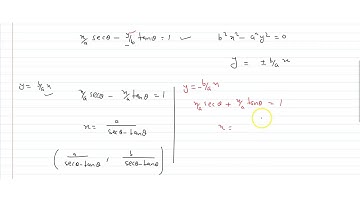 x/a secθ - y/b tanθ = 1 ✓
b²x² - a²y² = 0
y = ± b/a x
y = b/a x
x/a secθ - x/a tanθ = 1
x = a/(secθ - tanθ)
(a/(secθ - tanθ), b/(secθ - tanθ))
y = - b/a x
x/a secθ + x/a tanθ = 1
x =